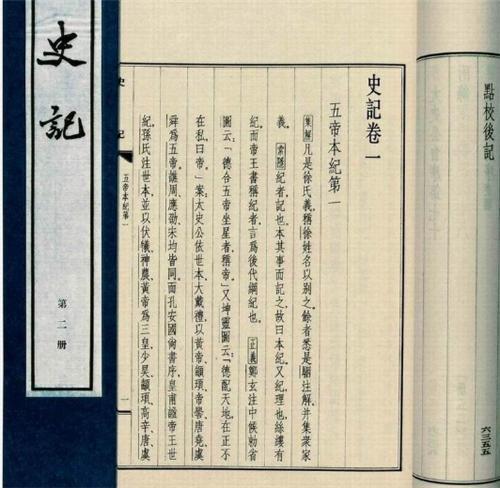 史記
第二册
史記卷一
五帝本紀第一
集解凡是徐氏義,稱徐姓名以別之。餘者悉是駰注解,并集衆家
義。索隱紀者,記也。本其事而記之,故曰本紀。又紀,理也,絲縷有
紀。而帝王書稱紀者,言爲後代綱紀也。正義鄭玄注中候勑省
圖云:「德合五帝坐星者,稱帝。」又坤靈圖云:「德配天地,在正不
在私,曰帝。」案:太史公依世本、大戴禮,以黃帝、顓頊、帝嚳、唐堯、虞
舜爲五帝。譙周、應劭、宋均皆同。而孔安國尚書序,皇甫謐帝王世
紀,孫氏注世本,並以伏犧、神農、黃帝爲三皇,少昊、顓頊、高辛、唐、虞
史記
五帝本紀第一
一
點校後記
六三五五